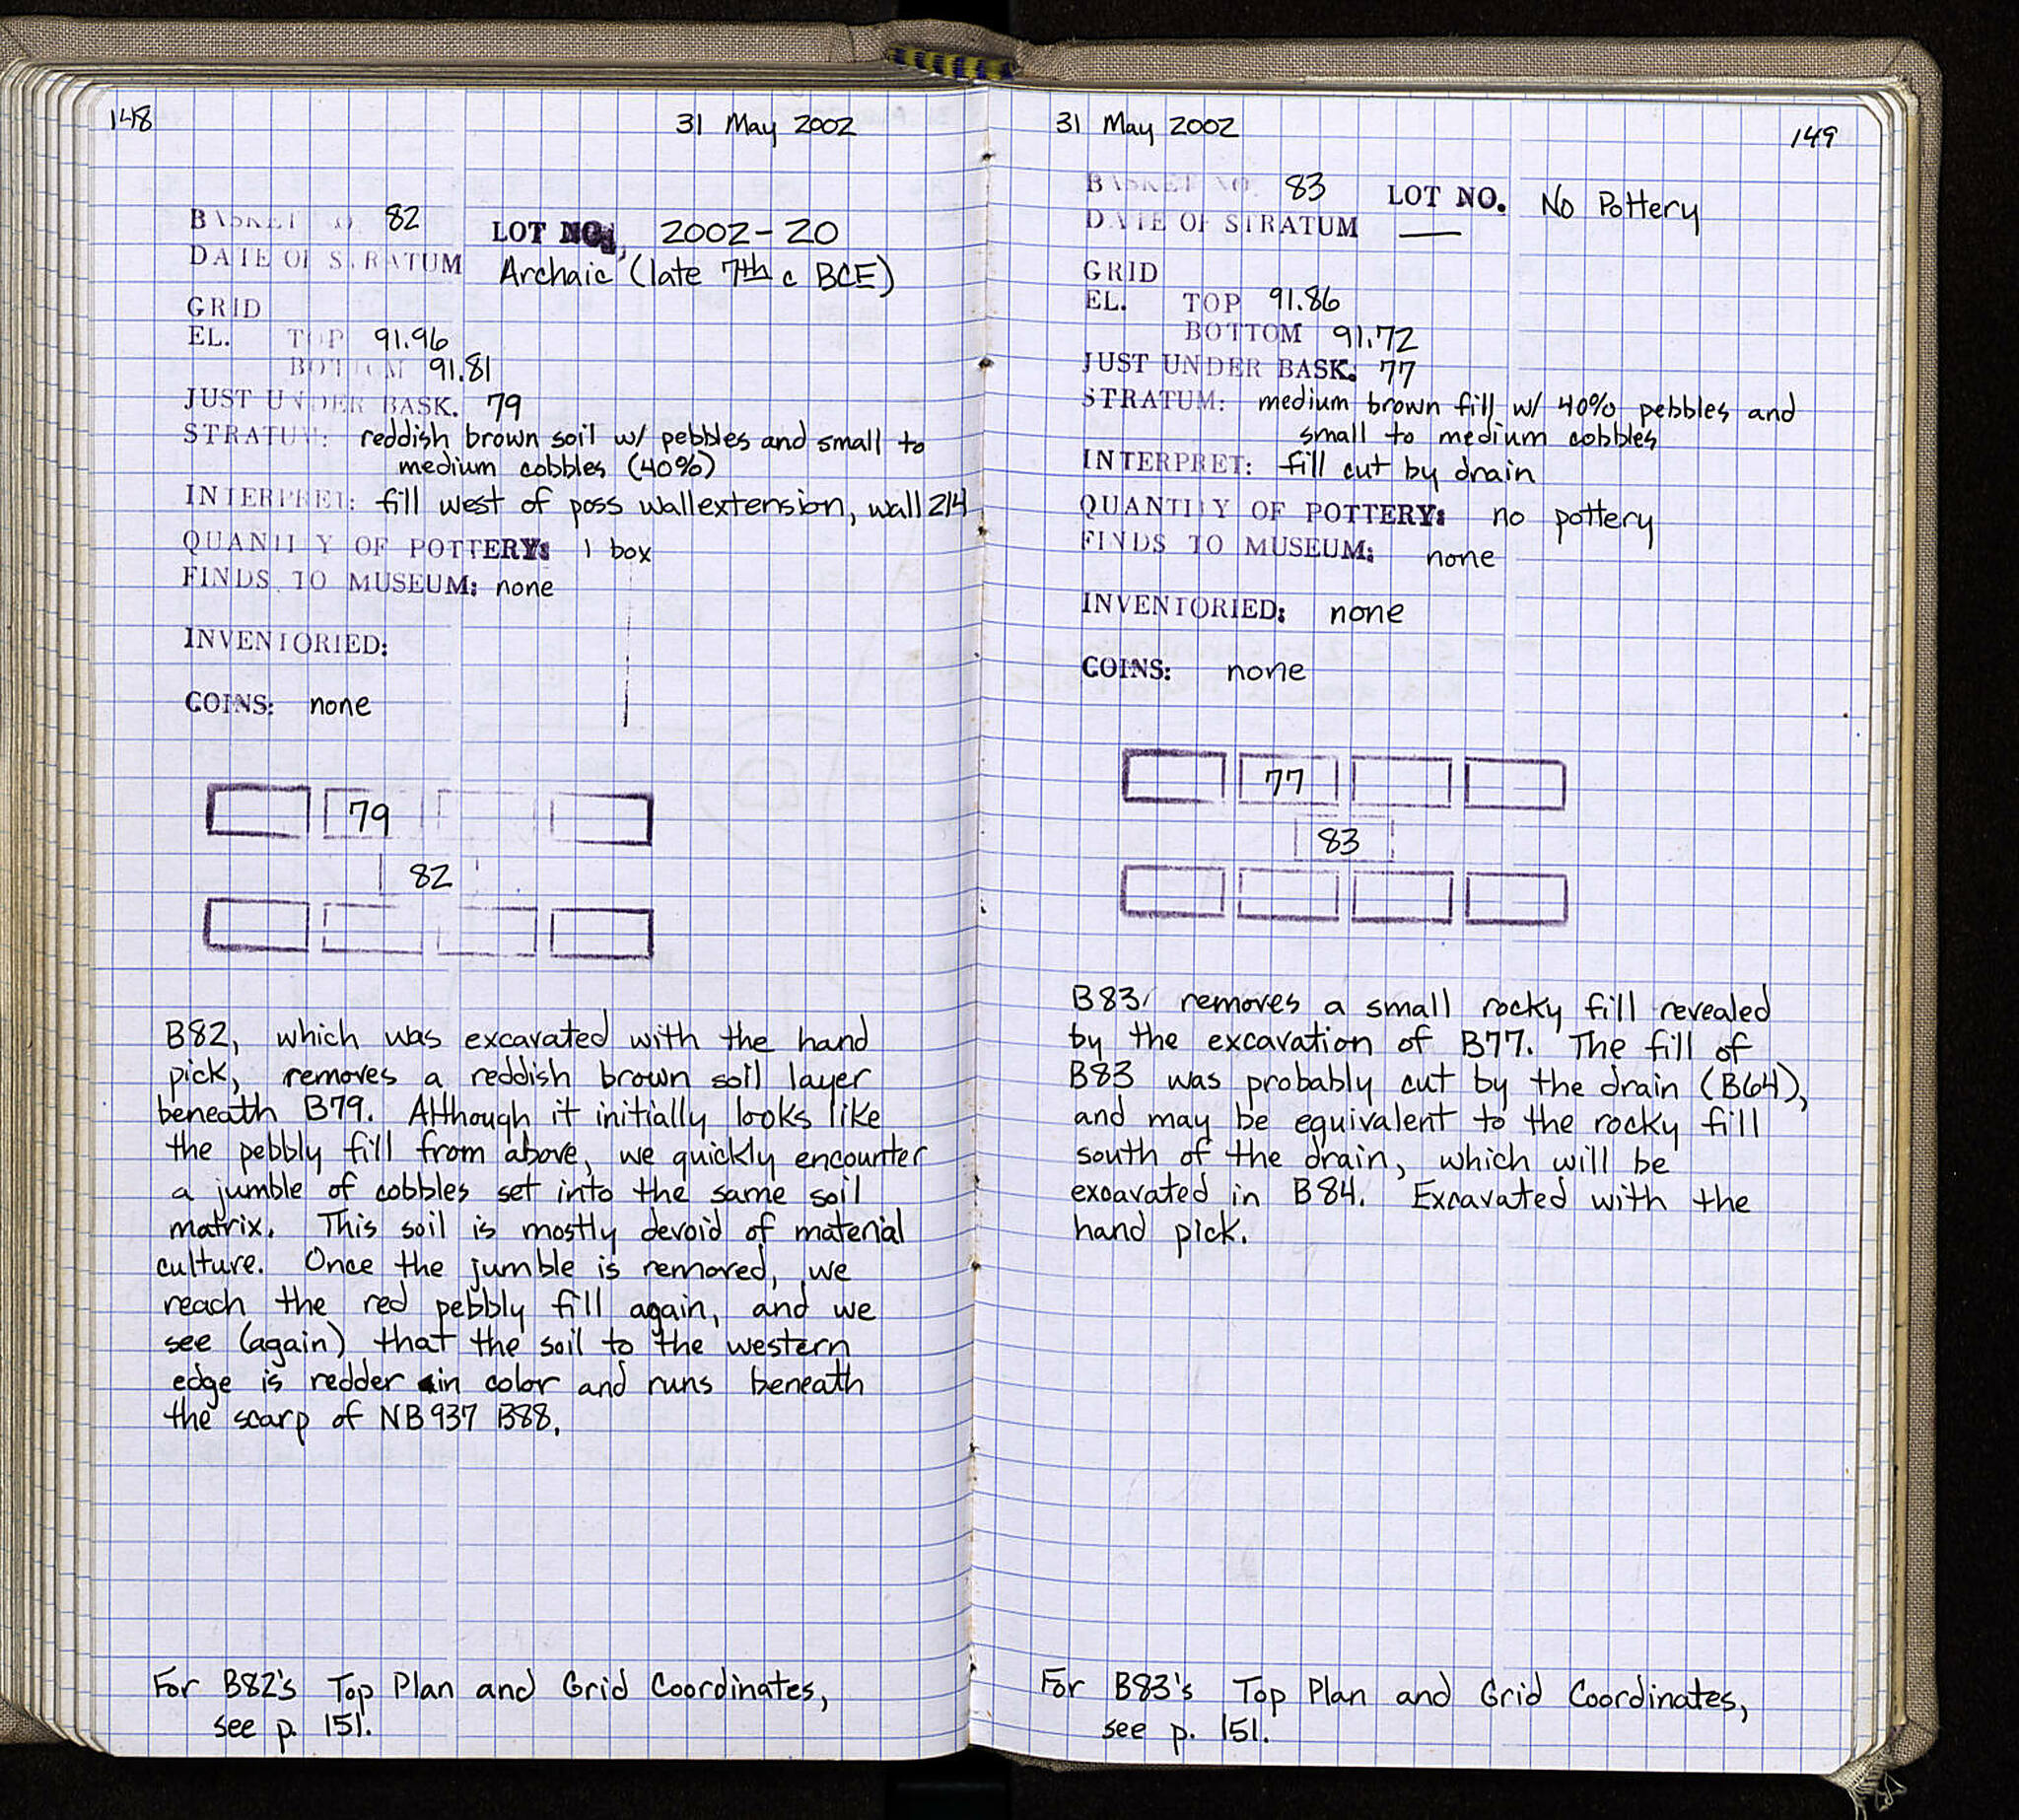 148
31 May 2002
BASKET NO. 82
LOT NO. 2002-20
DATE OF STRATUM Archaic (late 7th c BCE)
GRID
EL. TOP 91.96
BOTTOM 91.81
JUST UNDER BASK. 79
STRATUM: reddish brown soil w/ pebbles and small to
medium cobbles (40%)
INTERPRET: fill west of poss wall extension, wall 214
QUANTITY OF POTTERY: 1 box
FINDS TO MUSEUM: none
INVENTORIED:
COINS: none
79
82
B82, which was excavated with the hand
pick, removes a reddish brown soil layer
beneath B79. Although it initially looks like
the pebbly fill from above, we quickly encounter
a jumble of cobbles set into the same soil
matrix. This soil is mostly devoid of material
culture. Once the jumble is removed, we
reach the red pebbly fill again, and we
see (again) that the soil to the western
edge is redder in color and runs beneath
the scarp of NB 937 B88.
For B82's Top Plan and Grid Coordinates,
see p. 151.
31 May 2002
149
BASKET NO. 83 LOT NO. No Pottery
DATE OF STRATUM —
GRID
EL. TOP 91.86
BOTTOM 91.72
JUST UNDER BASK. 77
STRATUM: medium brown fill w/ 40% pebbles and
small to medium cobbles
INTERPRET: fill cut by drain
QUANTITY OF POTTERY: no pottery
FINDS TO MUSEUM: none
INVENTORIED: none
COINS: none
77
83
B83 removes a small rocky fill revealed
by the excavation of B77. The fill of
B83 was probably cut by the drain (B64),
and may be equivalent to the rocky fill
south of the drain, which will be
excavated in B84. Excavated with the
hand pick.
For B83's Top Plan and Grid Coordinates,
see p. 151.